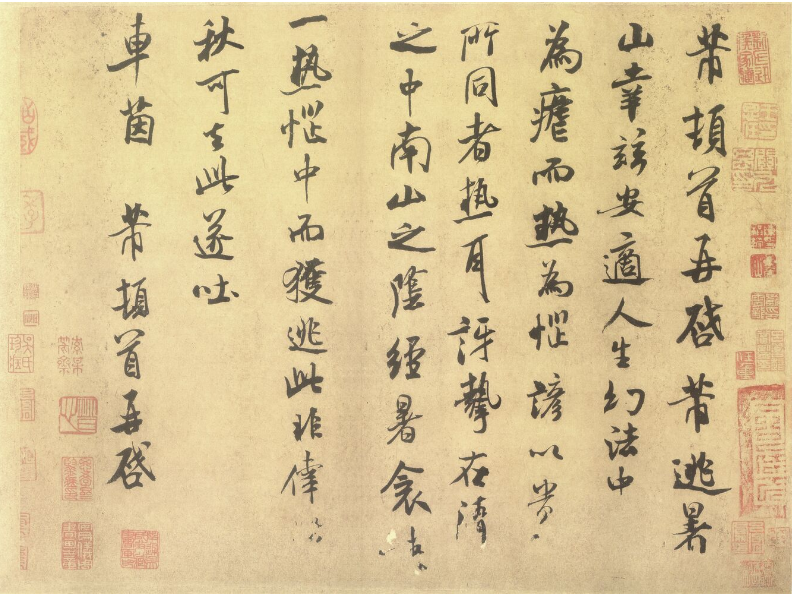 芾頓首再啓芾逃暑
山幸茲安適人生幻法中
為瘧而熱為惱諺以貴
所同者熱耳訝挈在
之中南山之陰經暑衾
一熱惱中而獲逃此非偉
秋可去此遂吐
車茵 芾頓首再啓